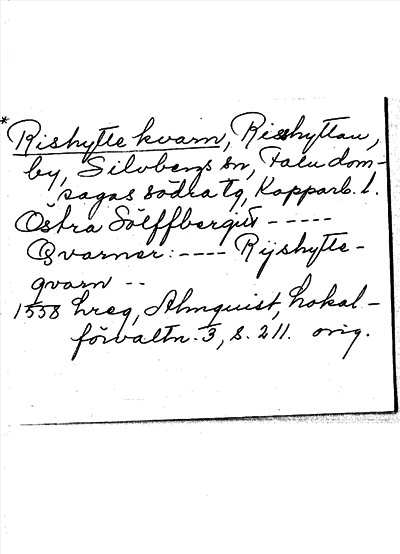 * Rishytte kvarn, Risshyttan,
by, Silvbergs sn, Falu dom-
sagas södra tg, Kopparb. l.
Östra Sölffbergit -----
Qvarner: ---- Rijshytte-
qvarn --
1558 hreg, Almquist, Lokal-
förvaltn. 3, s. 211. orig.